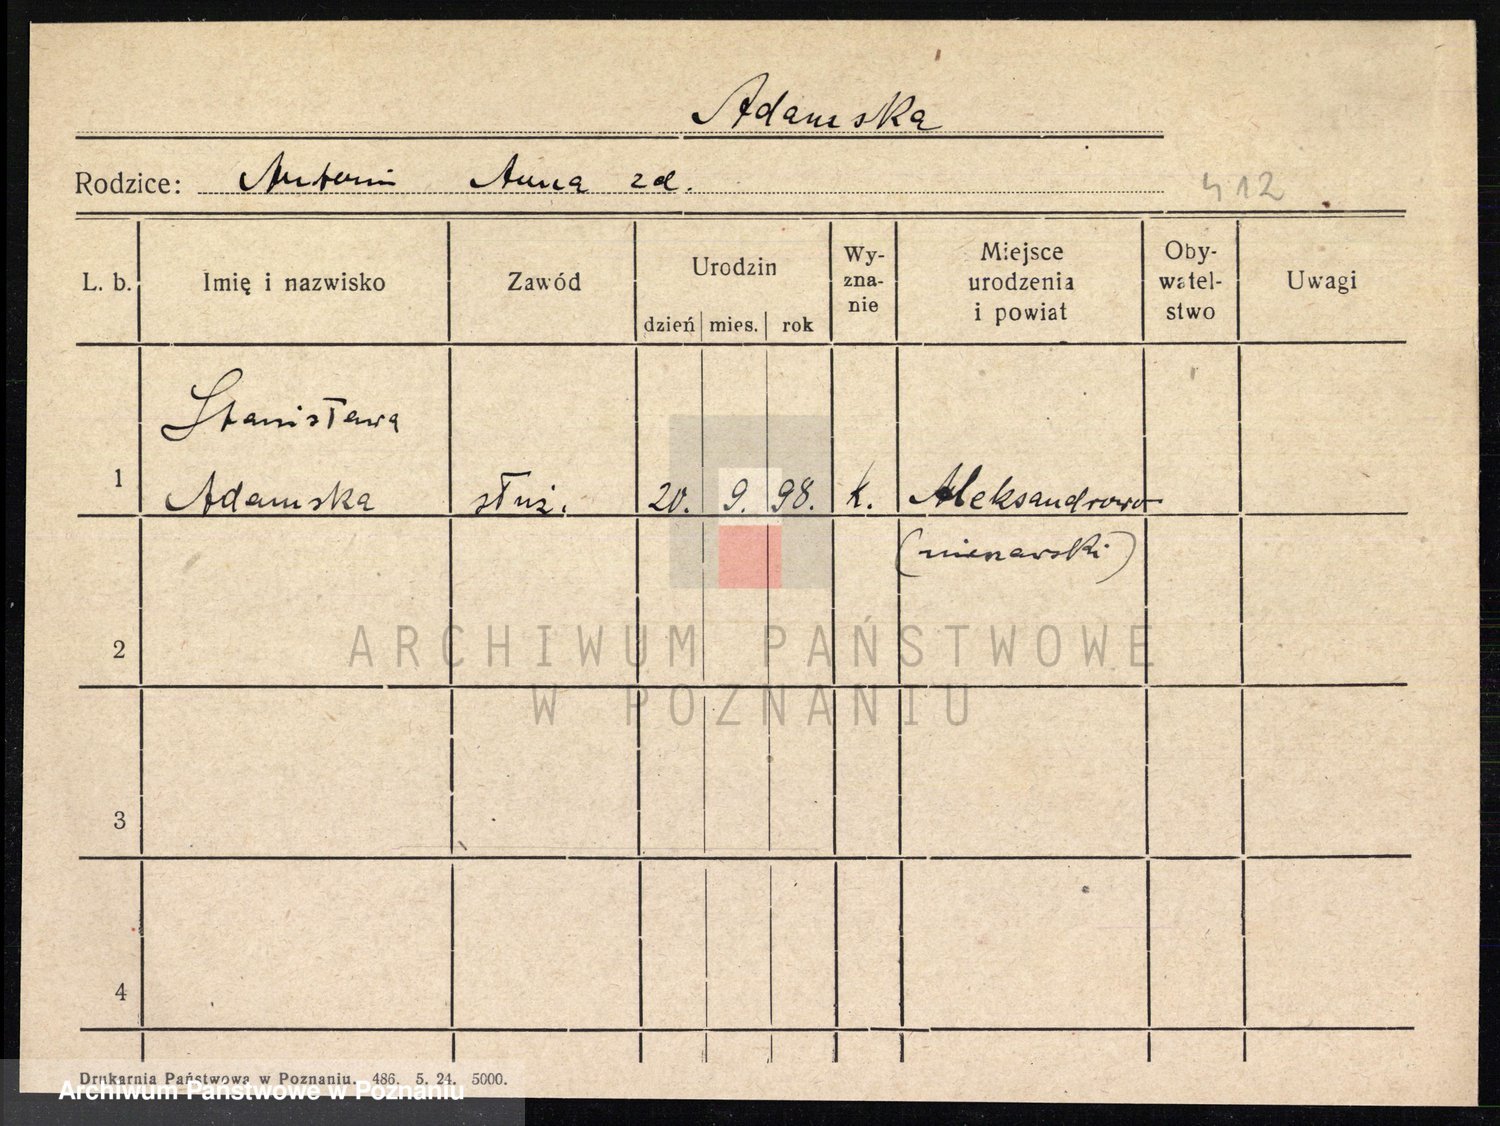 Adamska
Rodzice: Antoni Anna zd.
412
L. b. Imię i nazwisko Zawód Urodzin dzień mies. rok Wy-zna-nie Miejsce urodzenia i powiat Oby-watel-stwo Uwagi
Stanisława
1 Adamska służ. 20. 9. 98. k. Aleksandrowo
(nieszawski)
2
ARCHIWUM PAŃSTWOWE
W POZNANIU
3
4
Drukarnia Państwowa w Poznaniu. 486. 5. 24. 5000.
Archiwum Państwowe w Poznaniu